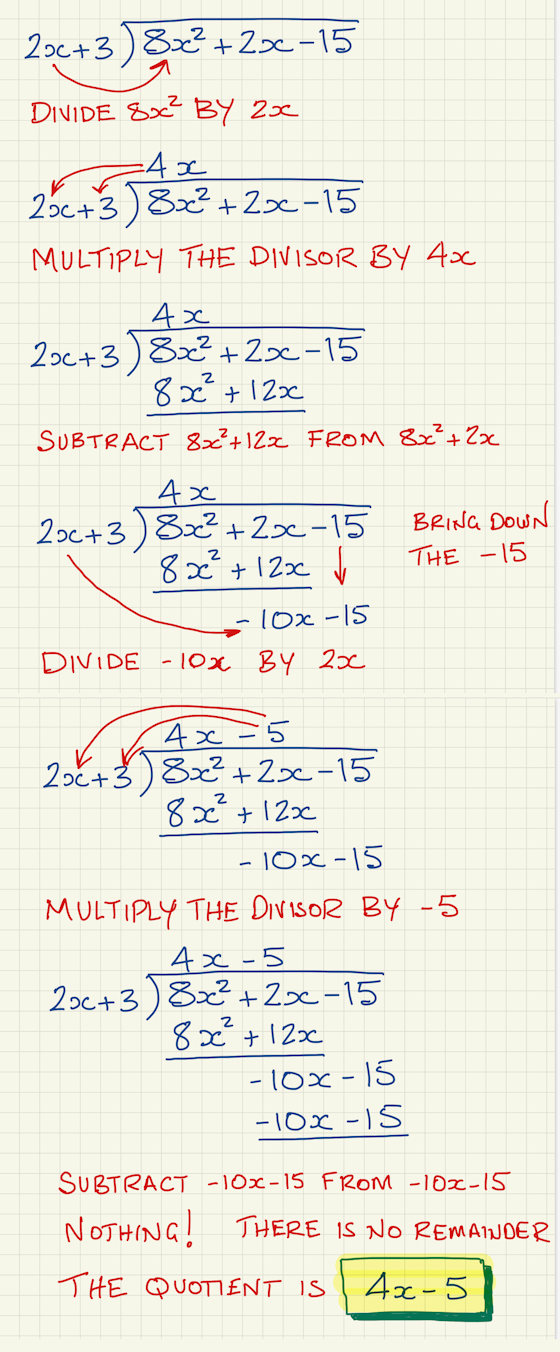 2x+3)8x²+2x-15
DIVIDE 8x² BY 2x
4x
2x+3)8x²+2x-15
MULTIPLY THE DIVISOR BY 4x
4x
2x+3)8x²+2x-15
8x²+12x
SUBTRACT 8x²+12x FROM 8x²+2x
4x
2x+3)8x²+2x-15
8x²+12x
-10x-15
BRING DOWN
THE -15
DIVIDE -10x BY 2x
4x-5
2x+3)8x²+2x-15
8x²+12x
-10x-15
MULTIPLY THE DIVISOR BY -5
4x-5
2x+3)8x²+2x-15
8x²+12x
-10x-15
-10x-15
SUBTRACT -10x-15 FROM -10x-15
NOTHING! THERE IS NO REMAINDER
THE QUOTIENT IS 4x-5